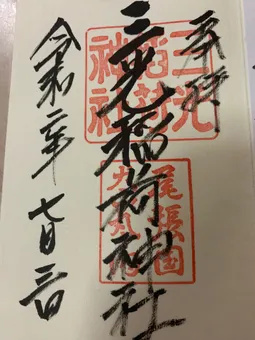 奉拝
三光
稲荷
神社
三光稲荷神社
尾張国
令和二年七月三日